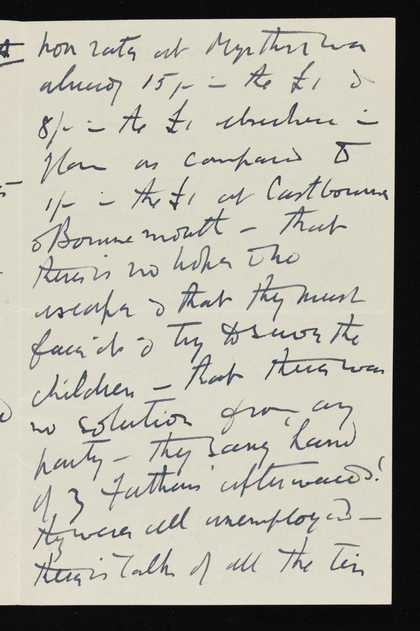 how rates at Merthyr was
already 15/- in the £1 &
8/- in the £1 elsewhere in
Glam as compared to
1/- in the £1 at Eastbourne
& Bournemouth – that
there is no hope & no
escape & that they must
face it & try to save the
children – that there was
no solution from any
party – they sang 'Land
of Fathers' afterwards!
They were all unemployed –
there is talk of all the Tin